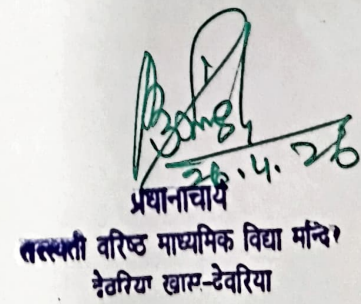 26.4.26
प्रधानाचार्य
सरस्वती वरिष्ठ माध्यमिक विद्या मन्दिर
देवरिया खास-देवरिया